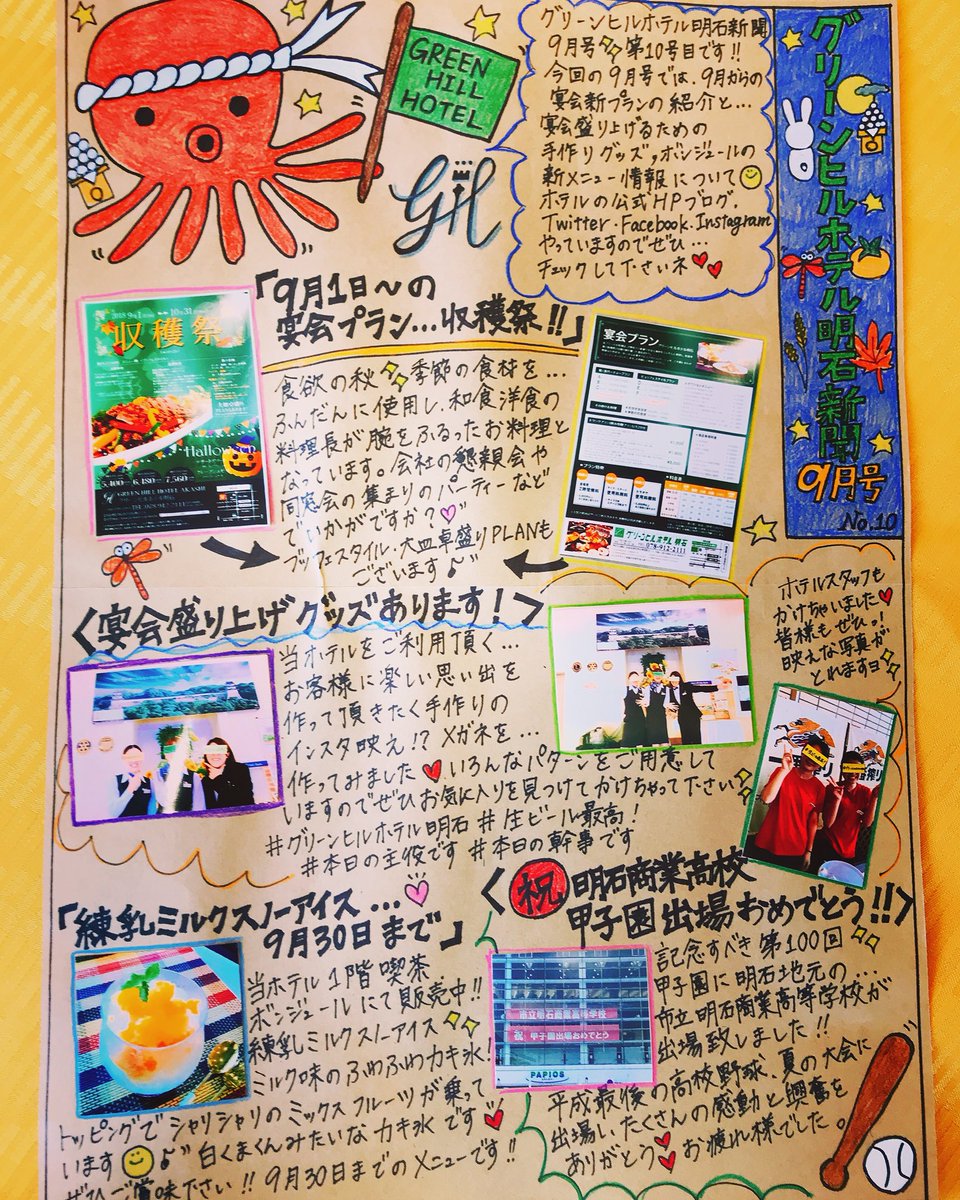 グリーンヒルホテル明石新聞
9月号
No.10
GREEN
HILL
HOTEL
GH
グリーンヒルホテル明石新聞
9月号 第10号目です!!
今回の9月号では、9月からの
宴会新プランの紹介と…
宴会盛り上げるための
手作りグッズ,ボンジュールの
新メニュー情報について
ホテルの公式HPブログ.
Twitter.Facebook.Instagram
やっていますのでぜひ…
チェックして下さいネ
「9月1日〜の
宴会プラン…収穫祭!!」
2018 9月1 10月31
収穫祭
Halloween
5,400 6,480 7,560
GREEN HILL HOTEL AKASHI
食欲の秋 季節の食材を…
ふんだんに使用し、和食洋食の
料理長が腕をふるったお料理と
なっています。会社の懇親会や
同窓会の集まりのパーティーなど
でいかがですか?
ブッフェスタイル・大皿卓盛りPLANも
ございます♪
宴会プラン
グリーンヒルホテル明石
078-912-2111
<宴会盛り上げグッズあります!>
当ホテルをご利用頂く…
お客様に楽しい思い出を
作って頂きたく手作りの
インスタ映え!?メガネを…
作ってみました いろんなパターンをご用意して
いますのでぜひお気に入りを見つけてかけちゃって下さい
#グリーンヒルホテル明石 #生ビール最高!
#本日の主役です #本日の幹事です
ホテルスタッフも
かけちゃいました
皆様もぜひっ!
映えな写真が
とれますヨ
「練乳ミルクスノーアイス…
9月30日まで」
当ホテル1階喫茶
ボンジュールにて販売中!!
練乳ミルクスノーアイス
ミルク味のふわふわカキ氷!
トッピングでシャリシャリのミックスフルーツが乗って
います ♪ 白くまくんみたいなカキ氷です
ぜひご賞味下さい!! 9月30日までのメニューです!!
<祝 明石商業高校
甲子園出場おめでとう!!>
市立明石商業高等学校
祝 甲子園出場おめでとう
PAPIOS
記念すべき第100回
甲子園に明石地元の…
市立明石商業高等学校が
出場致しました!!
平成最後の高校野球、夏の大会に
出場し、たくさんの感動と興奮を
ありがとう お疲れ様でした。